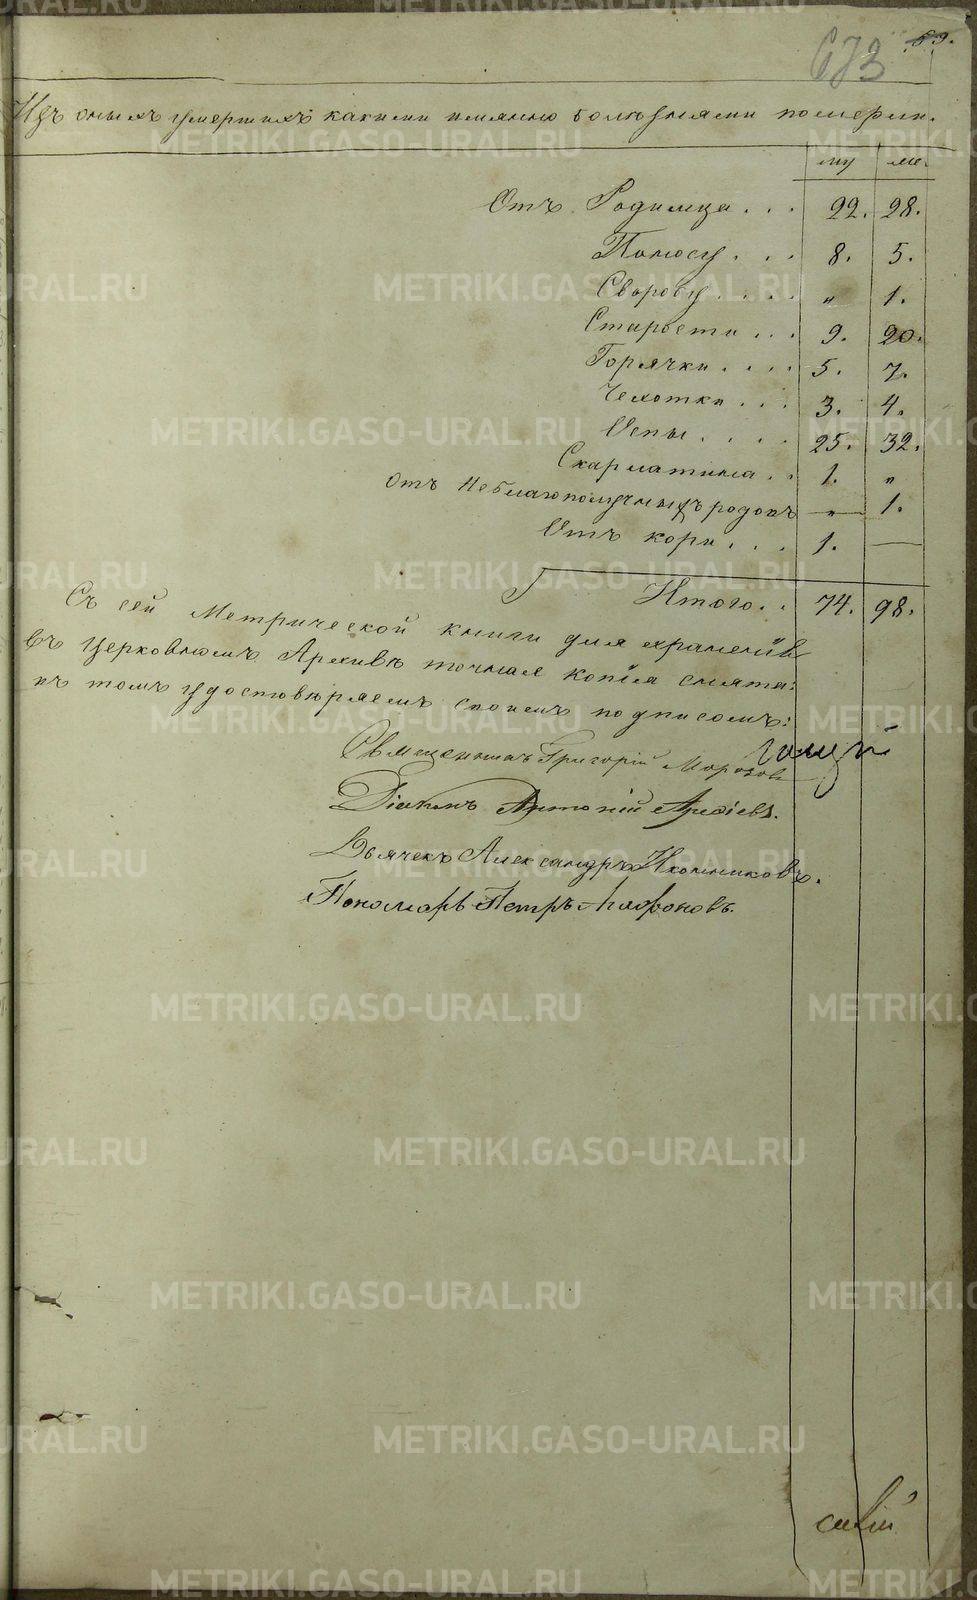 673 89.
Изъ оныхъ умершихъ какими имянно болѣзнями померли.
му же.
Отъ Родимца . . . 22. 28.
Поносу . . . 8. 5.
Своробу . . . . „ 1.
Старости . . . 9. 20.
Горячки . . . . 5. 7.
Чехотки . . . 3. 4.
Оспы . . . . 25. 32.
Скарлатина . . 1. „
Отъ неблагополучныхъ родовъ „ 1.
Отъ кори . . . 1. —
Итого . . 74. 98.
Съ сей Метрической книги для храненія
въ Церковномъ Архивѣ точная копія снята:
въ томъ удостовѣряемъ своимъ подписомъ:
Священникъ Григорій Морозовъ
Діаконъ Антоній Арефіевъ.
Дьячекъ Александръ Иконниковъ.
Пономарь Петръ Агафоновъ.
METRIKI.GASO-URAL.RU